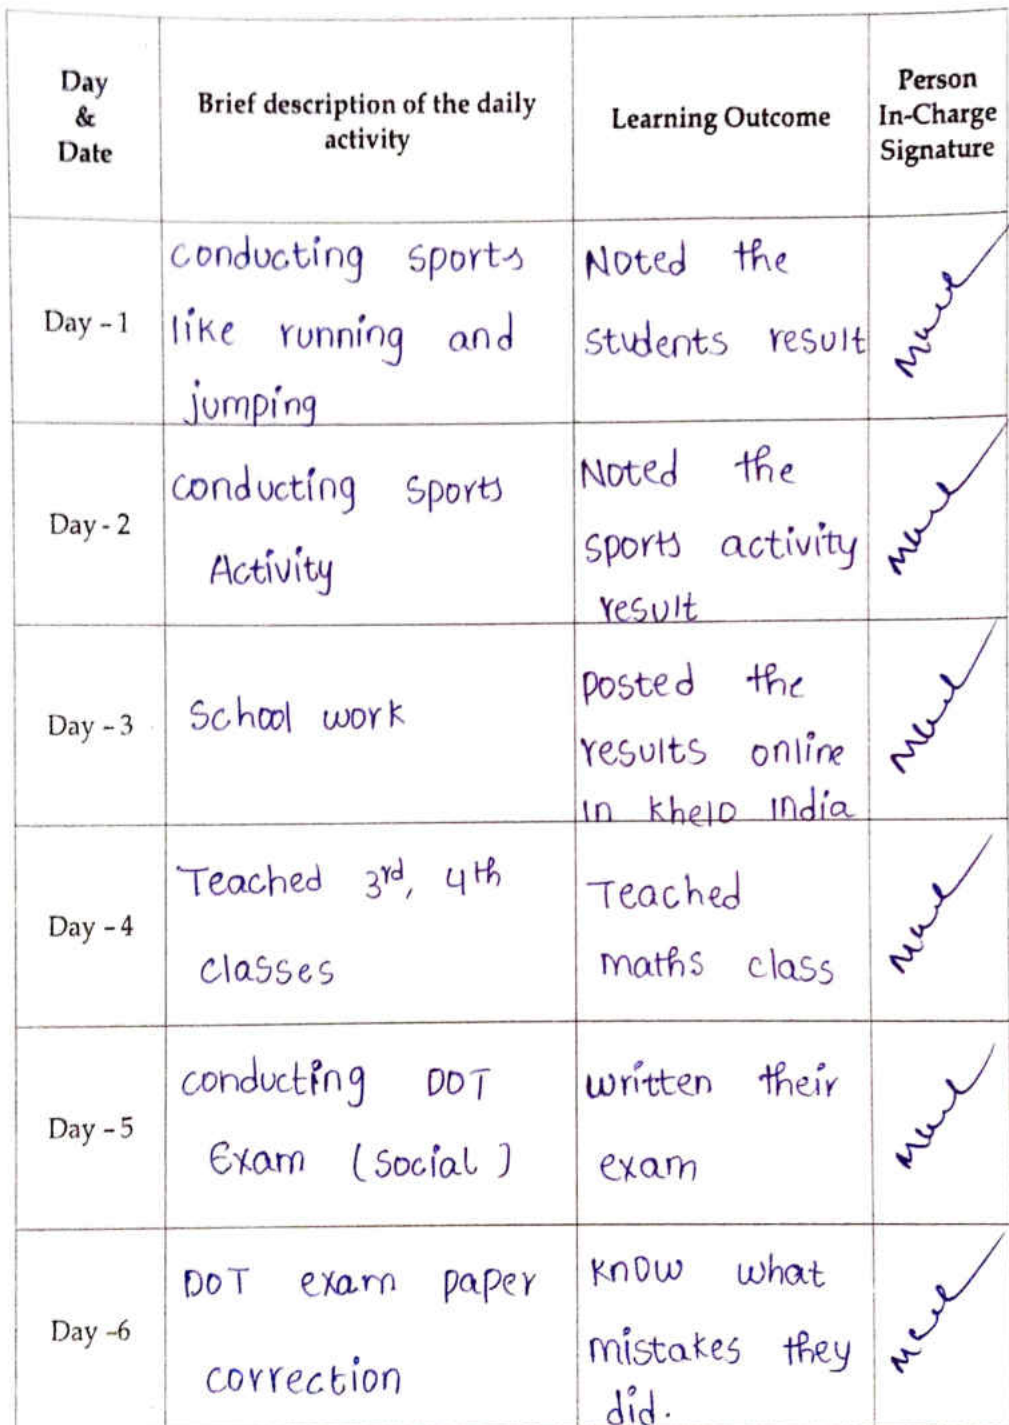 Day & Date
Brief description of the daily activity
Learning Outcome
Person In-Charge Signature
Day - 1
conducting sports
like running and
jumping
Noted the
students result
Day - 2
conducting sports
Activity
Noted the
sports activity
result
Day - 3
School work
posted the
results online
in khelo india
Day - 4
Teached 3rd, 4th
classes
Teached
maths class
Day - 5
conducting DOT
Exam (social)
written their
exam
Day -6
DOT exam paper
correction
know what
mistakes they
did.